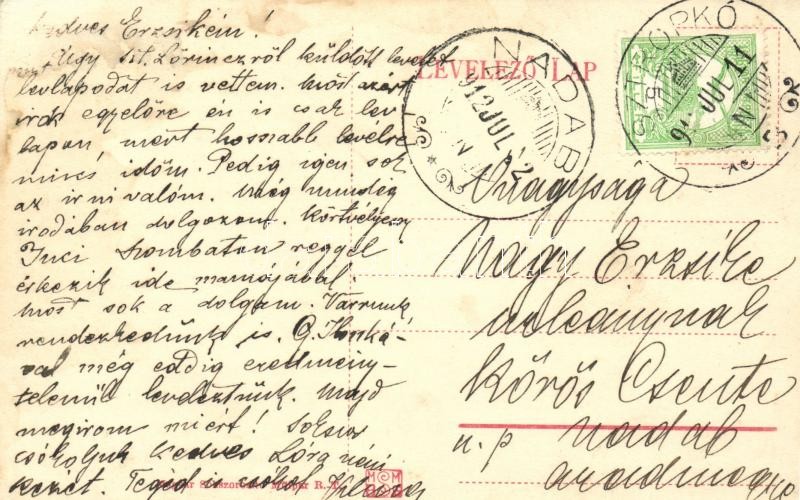 Kedves Erzsikém!
Úgy szt. Lőrinczről küldött levelet
levlapodat is vettem. Most azért
irok egyelőre én is csak lev
lapon, mert hosszabb levelre
nincs időm. Pedig igen sok
az irnivalóm. Még mindég
irodában dolgozom. Körtvélyesy
Juci szombaton reggel
érkezik ide mamájával
most sok a dolgom. Varrunk
rendezkedünk is. G. Ilonká-
val még eddig eredmény-
telenül leveleztünk. Majd
megirom miért! Sokszor
csókoljuk kedves Lóra néni
kezét. Téged is csókol
LEVELEZŐ LAP
NADAB
912 JUL 12
OPKÓ
JUL 11
Őnagysága
Nagy Erzsike
urleánynak
Kőrös Csente
u. p nadab
aradmegye